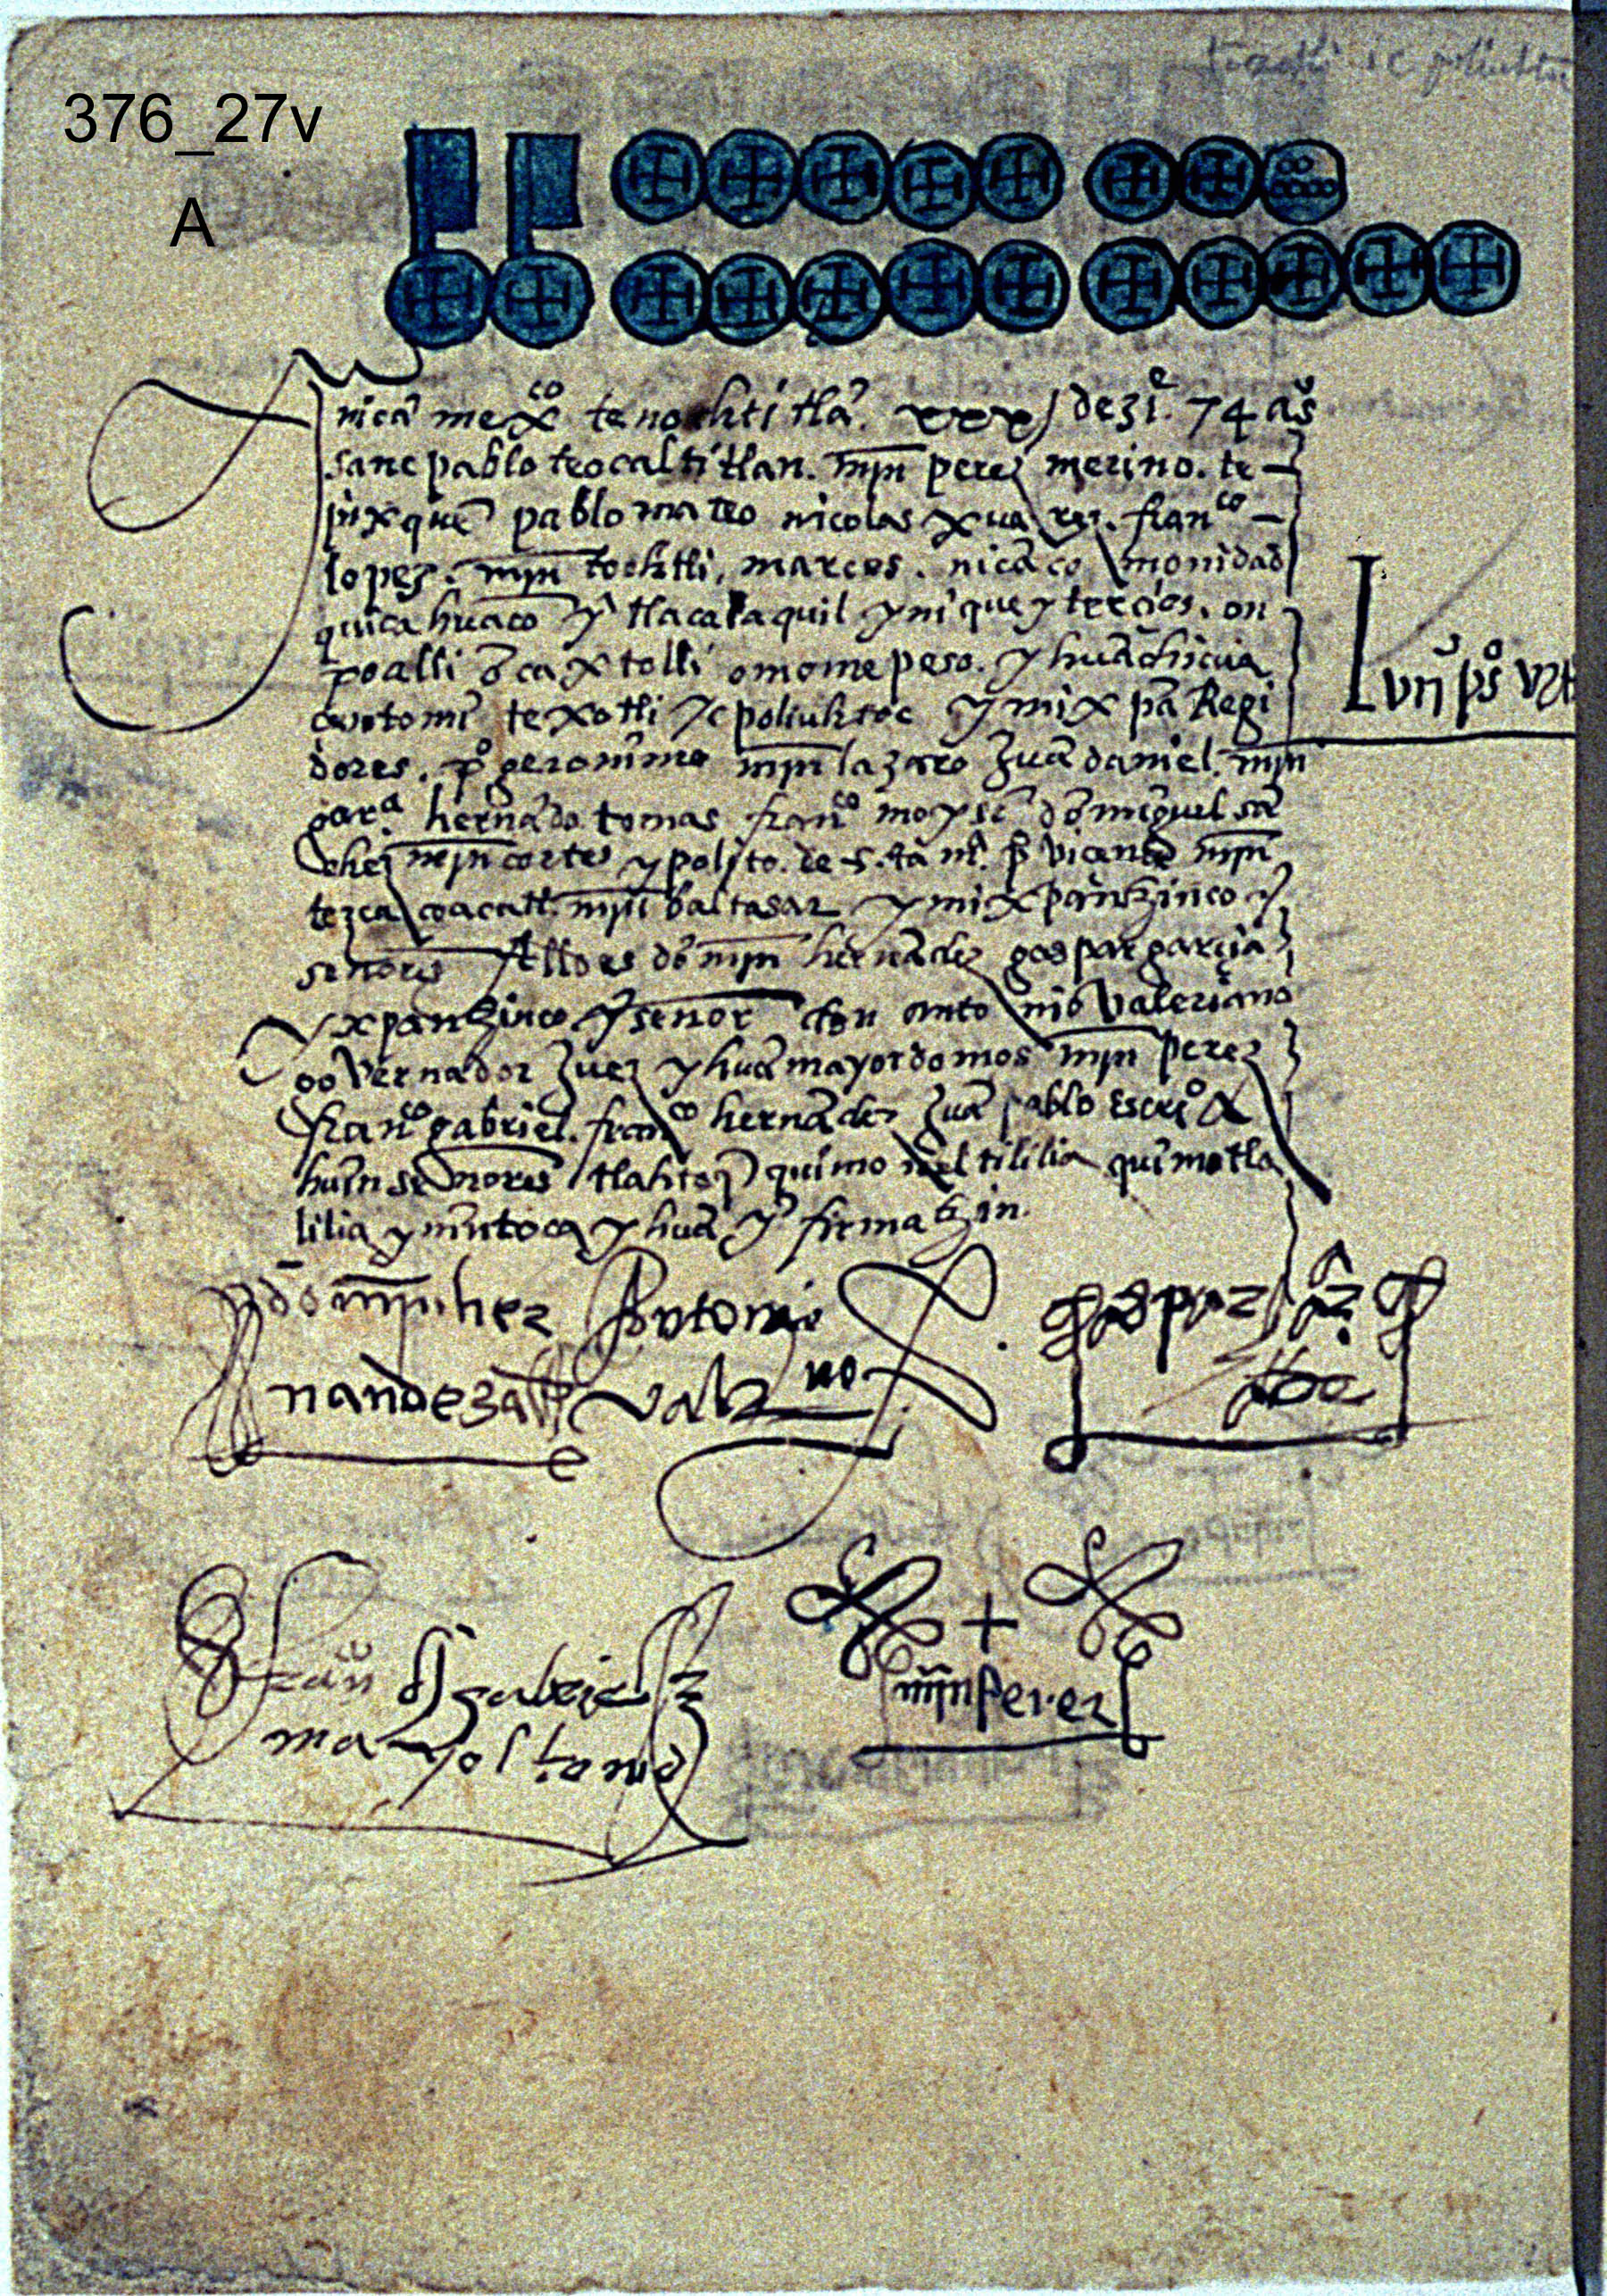 376_27v
A
nicā mexᶜᵒ tenochtitlā. xxxj dezīᵉ. 74 aṉ̃s
sanc pablo teocaltitlan. mῑn perez merino. te
pixquē pablo mateo nicolas xuarez. franᶜᵒ
lopez. mῑn tochtli, marcos. nicā co monidad
quicahuaco ȳ tlacalaquil yniquey tercios. on
poalli ōcaxtolli omome peso. yhuā chicua
tomī texotli yc poliuhtoc ymixpā Regi
dores. pº geronimo mῑn lazaro Juā daniel. mῑn
garᵃ hernādo tomas franᶜᵒ moysē dō miguel sā
chez mῑn cortes ypolito. de s.tā mᵃ. pº vicente mῑn
tezcacoacatl. mῑn baltasar ymixpantzinco ȳ
señores Allˡᵈᵉˢ dō mῑn hernādez gaspar garçia
yxpantzinco ȳ señor don antonio Valeriano
governador Juez yhuā mayordomos mῑn perez
franᶜᵒ gabriel. franᶜᵒ hernādez Juā pablo escriº &
huin señores tlahtoqᵉ quimoneltililia quimotla
lilia yntoca yhuā ȳ firmatzin.
vñ pºs
dō mῑn her
nandez allᵈᵉ
Antonio
valrⁿᵒ
gaspar gãr
franᶜᵒ gabriel
mayoltomo
mῑn perez